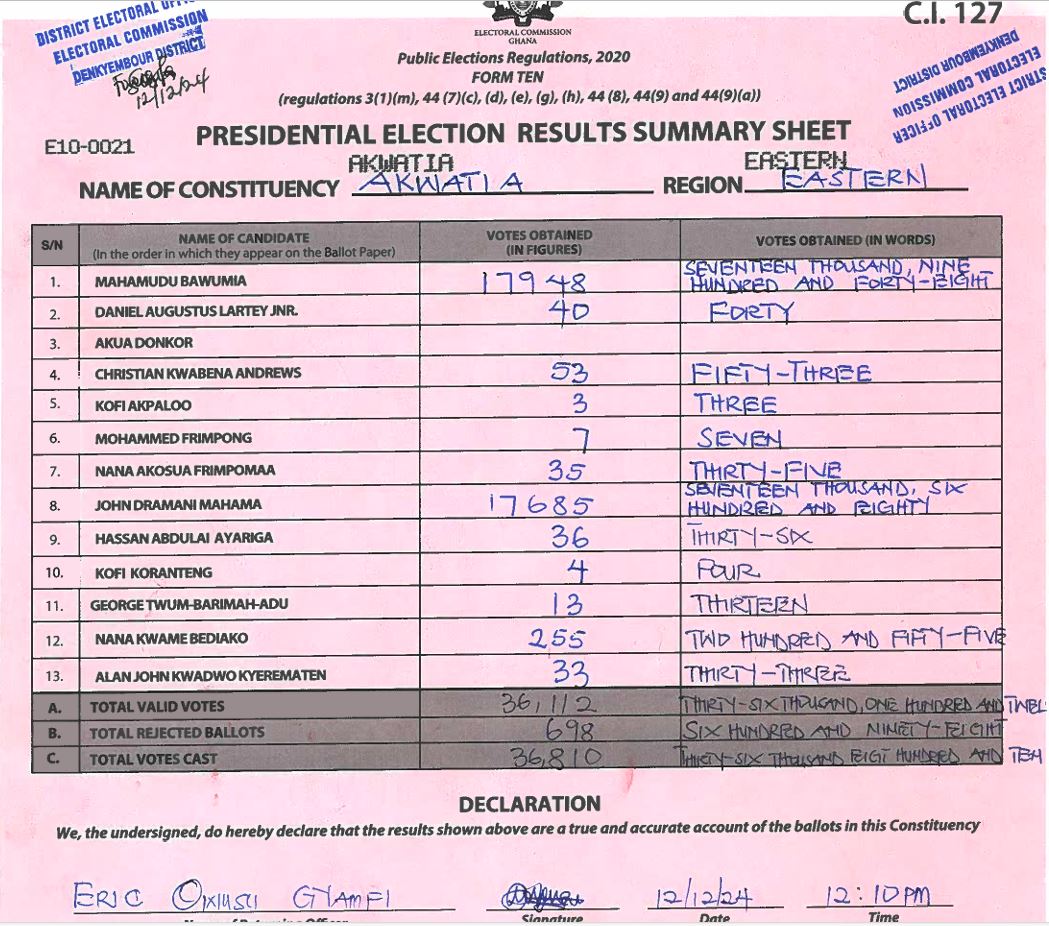 DISTRICT ELECTORAL OFF
ELECTORAL COMMISSION
DENKYEMBOUR DISTRICT
12/12/24
ELECTORAL COMMISSION
GHANA
C.I. 127
DISTRICT ELECTORAL OFFICER
ELECTORAL COMMISSION
DENKYEMBOUR DISTRICT
Public Elections Regulations, 2020
FORM TEN
(regulations 3(1)(m), 44 (7)(c), (d), (e), (g), (h), 44 (8), 44(9) and 44(9)(a))
E10-0021
PRESIDENTIAL ELECTION RESULTS SUMMARY SHEET
AKWATIA EASTERN
NAME OF CONSTITUENCY AKWATIA REGION EASTERN
S/N NAME OF CANDIDATE (In the order in which they appear on the Ballot Paper) VOTES OBTAINED (IN FIGURES) VOTES OBTAINED (IN WORDS)
1. MAHAMUDU BAWUMIA 17948 SEVENTEEN THOUSAND, NINE HUNDRED AND FORTY-EIGHT
2. DANIEL AUGUSTUS LARTEY JNR. 40 FORTY
3. AKUA DONKOR
4. CHRISTIAN KWABENA ANDREWS 53 FIFTY-THREE
5. KOFI AKPALOO 3 THREE
6. MOHAMMED FRIMPONG 7 SEVEN
7. NANA AKOSUA FRIMPOMAA 35 THIRTY-FIVE
8. JOHN DRAMANI MAHAMA 17685 SEVENTEEN THOUSAND, SIX HUNDRED AND EIGHTY
9. HASSAN ABDULAI AYARIGA 36 THIRTY-SIX
10. KOFI KORANTENG 4 FOUR
11. GEORGE TWUM-BARIMAH-ADU 13 THIRTEEN
12. NANA KWAME BEDIAKO 255 TWO HUNDRED AND FIFTY-FIVE
13. ALAN JOHN KWADWO KYEREMATEN 33 THIRTY-THREE
A. TOTAL VALID VOTES 36,112 THIRTY-SIX THOUSAND, ONE HUNDRED AND TWEL
B. TOTAL REJECTED BALLOTS 698 SIX HUNDRED AND NINETY-EIGHT
C. TOTAL VOTES CAST 36,810 THIRTY-SIX THOUSAND EIGT HUNDRED AND TEN
DECLARATION
We, the undersigned, do hereby declare that the results shown above are a true and accurate account of the ballots in this Constituency
ERIC GYAMFI 12/12/24 12:10PM
Signature Date Time